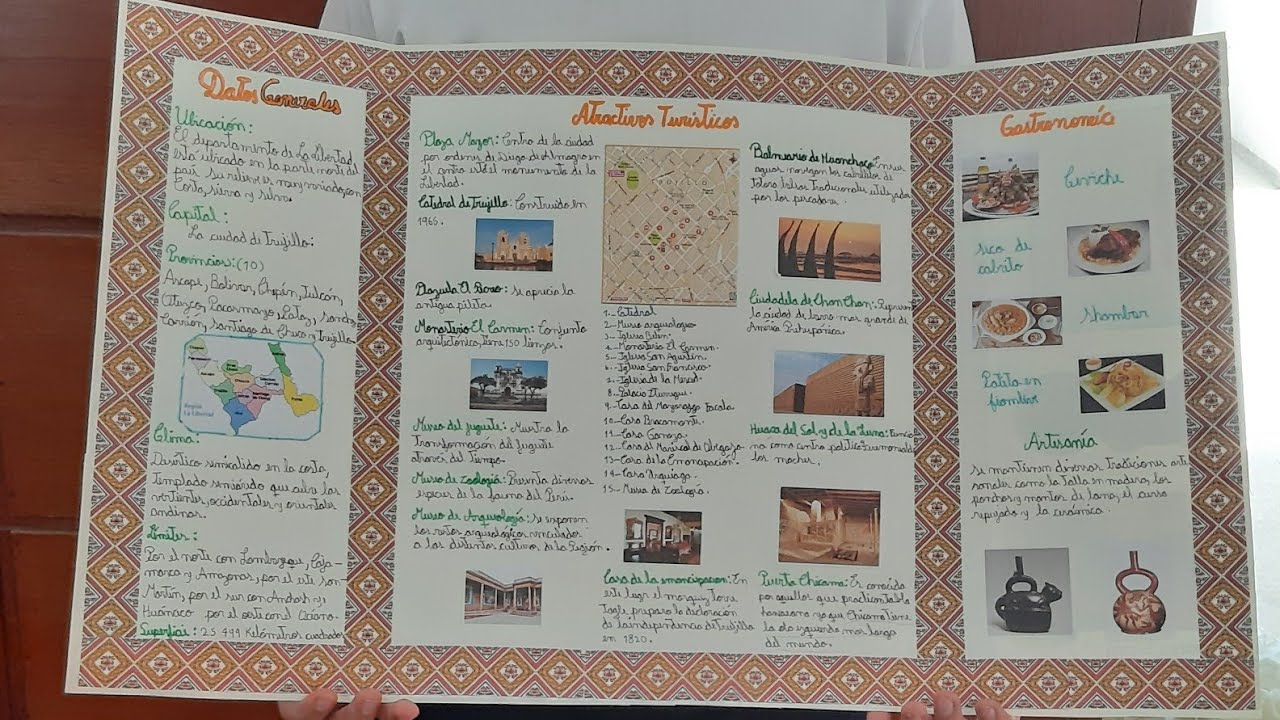 Datos Generales
Ubicación:
El departamento de La libertad,
está ubicado en la parte norte del
país su relieve es muy variado, con
Costa, sierra y selva.
Capital:
La ciudad de Trujillo.
Provincias: (10)
Ascope, Bolivar, Chepén, Julcán,
Otuzco, Pacasmayo, Pataz, Sanchez
Carrión, Santiago de Chuco y Trujillo.
Región
La Libertad
Clima:
Desértico semicalido en la costa,
Templado semiárido que cubre las
vertientes, occidentales y orientales
andinas.
Límites:
Por el norte con Lambayeque, Caja-
marca y Amazonas, por el este San-
Martín, por el sur con Ancash y
Huánaco por el oeste con el Océano.
Superficie: 25 499 Kilómetros cuadrados
Atractivos Turísticos
Plaza Mayor: Centro de la ciudad
por ordenes de Diego de Almagro en
el centro está el monumento de la
Libertad.
Catedral de Trujillo: Construido en
1965.
Plazuela El Recreo: Se aprecia la
antigua pileta
Monasterio El Carmen: Conjunto
arquitectónico, tiene 150 lienzos.
Museo del juguete: Muestra la
Transformación del juguete
através del Tiempo.
Museo de Zoología: Presenta diversas
especies de la fauna del Perú.
Museo de Arqueología: Se exponen
los restos arqueologicos vinculados
a las distintas culturas de la Región.
TRUJILLO
1.- Catedral
2.- Museo arqueologico
3.- Iglesia Belén
4.- Monasterio El Carmen.
5.- Iglesia San Agustín.
6.- Iglesia San Francisco.
7.- Iglesia de la Merced.
8.- Palacio Iturregui
9.- Casa del Mayorazgo Facala
10.- Casa Bracamonte.
11.- Casa Ganoza
12.- Casa de Mariscal de Orbegozo
13.- Casa de la Emancipación.
14.- Casa Urquiaga.
15.- Museo de Zoología.
Casa de la emancipación: En
este lugar el marquez Torre
Tagle preparo la declaración
de la independencia de Trujillo
en 1820.
Balneario de Huanchaco: En sus
aguas navegan los caballitos de
totora balsas Tradicionales utilizadas
por los pescadores.
Ciudadela de Chan Chan: Represen
la ciudad de barro mas grande de
América Prehispánica.
Huaca del Sol y de la Luna: Funcio
na como centro politico ceremonial de
los moches.
Puerto Chicama: Es conocido
por aquellos que practican tabla
hawaiana ya que Chicama tiene
la ola izquierda mas larga
del mundo.
Gastronomía
Ceviche
Seco de
cabrito
Shambar
Patita en
fiambre
Artesanía
Se mantienen diversas tradiciones arte
sanales como la talla en madera, los
ponchos y mantos de lana, el cuero
repujado y la cerámica.